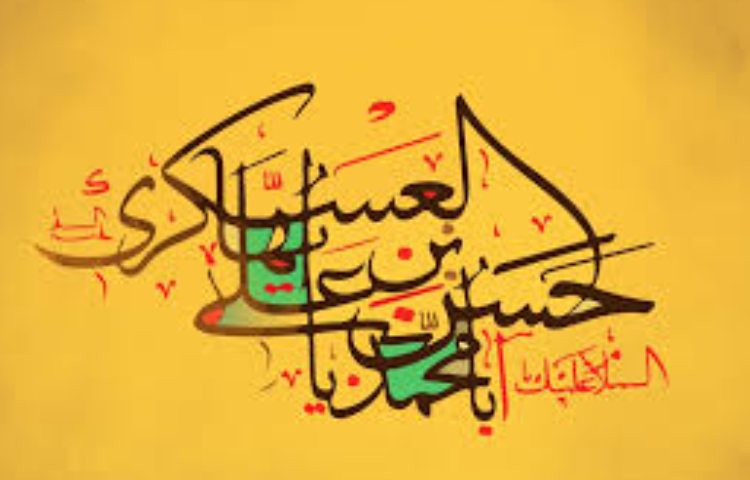 السلام علیک یا
ابا محمد یا
حسن بن علی
ایها العسکری